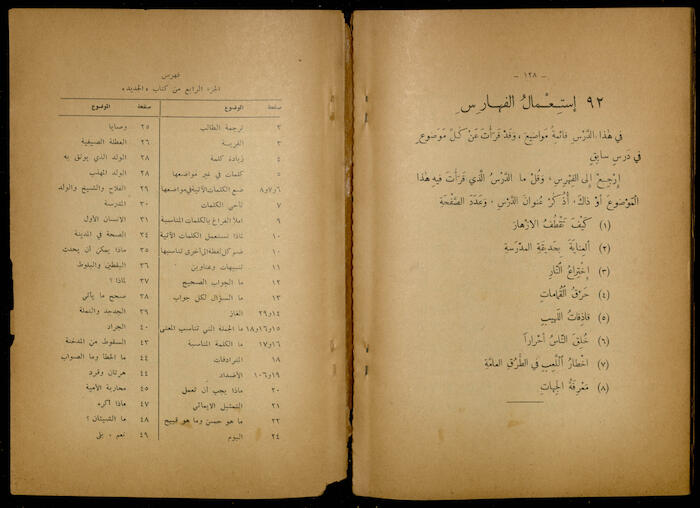 - ١٢٨ -
٩٢ إستِعْمالُ الفهارِسِ
في هٰذا الدَّرْسِ قائمةُ مَواضيعَ ، وَقَدْ قَرَأْتَ عَنْ كُلِّ مَوْضوعٍ
في درسٍ سابقٍ
إِرْجِعْ إلى الفِهْرِسِ ، وَقُلْ ما الدَّرْسُ الَّذي قَرَأْتَ فيهِ هٰذا
المَوْضوعَ أَوْ ذاكَ . أُذْكُرْ عُنوانَ الدَّرْسِ ، وَعَدَدَ الصَّفْحَةِ
(١) كَيْفَ تَقْطُفُ الازهارَ
(٢) العِنايَةُ بِحَديقةِ المَدْرَسةِ
(٣) إختِراعُ النّارِ
(٤) حَرْقُ القُماماتِ
(٥) قاذِفاتُ اللَّهيبِ
(٦) خُلِقَ النّاسُ أَحْراراً
(٧) اخْطارُ اللَّعِبِ في الطُّرُقِ العامَّةِ
(٨) مَعْرِفَةُ الجِهاتِ
فهرس
الجزء الرابع من كتاب «الجديد»
صفحة الموضوع صفحة الموضوع
٣ ترجمة الطالب ٢٥ وصايا
٣ القرينة ٢٦ العطلة الصيفية
٤ زيادة كلمة ٢٨ الولد الذي يوثق به
٥ كلمات في غير مواضعها ٢٨ الولد المهذب
٦و٧و٨ ضع الكلمات الآتية في مواضعها ٢٩ الفلاح والشيخ والولد
٧ تآخي الكلمات ٣٠ المدرسة
٩ املأ الفراغ بالكلمات المناسبة ٣١ الانسان الأول
١٠ لماذا تستعمل الكلمات الآتية ٣٤ الصحة في المدينة
١٠ ضم كل لفظة الى أخرى تناسبها ٣٥ ماذا يمكن أن يحدث
١١ تنبيهات وعناوين ٣٦ اليقطين والبلوط
١٢ ما الجواب الصحيح ٣٧ لماذا ؟
١٣ ما السؤال لكل جواب ٣٨ صحح ما يأتي
١٤و٢٩ الغاز ٣٩ الجدجد والنملة
١٥و١٦و١٨ ما الجملة التي تناسب المعنى ٤٠ الجراد
١٦و١٧ ما الكلمة المناسبة ٤٣ السقوط من المدخنة
١٨ المترادفات ٤٤ ما الخطأ وما الصواب
١٩و١٠٦ الأضداد ٤٤ هرتان وقرد
٢٠ ماذا يجب أن تعمل ٤٥ محاربة الأمية
٢١ التمثيل الايمائي ٤٧ ماذا أكره
٢٢ ما هو حسن وما هو قبيح ٤٨ ما الشيئان ؟
٢٤ اليوم ٤٩ نعم ، بلى